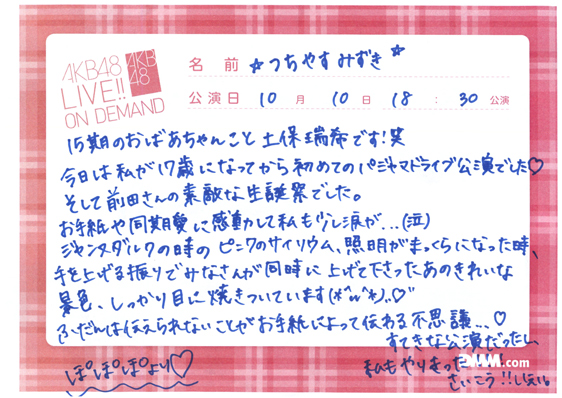 AKB48
LIVE!!
ON DEMAND
AKB
48
名 前 ☆つちやすみずき☆
公演日 10 月 10 日 18 : 30 公演
15期のおばあちゃんこと土保瑞希です!笑
今日は私が17歳になってから初めてのパジャマドライブ公演でした♡
そして前田さんの素敵な生誕祭でした。
お手紙や同期愛に感動して私も少し涙が...(泣)
ジャンヌダルクの時のピンクのサイリウム、照明がまっくらになった時、
手を上げる振りでみなさんが同時に上げて下さったあのきれいな
景色、しっかり目に焼きついています(*^^*)..♡"
ふだんは伝えられないことがお手紙によって伝わる不思議...♡
すてきな公演だったし、
私もやりきった
さいこう!!
ぽぽぽぽより♡
DMM.com